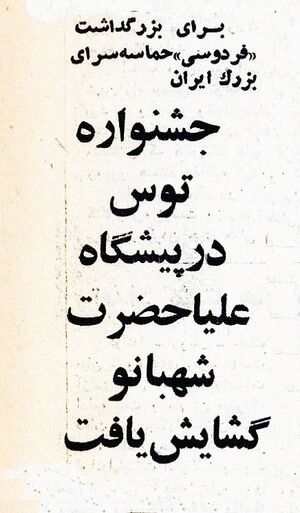 برای بزرگداشت
«فردوسی» حماسه‌سرای
بزرگ ایران
جشنواره
توس
در پیشگاه
علیاحضرت
شهبانو
گشایش یافت